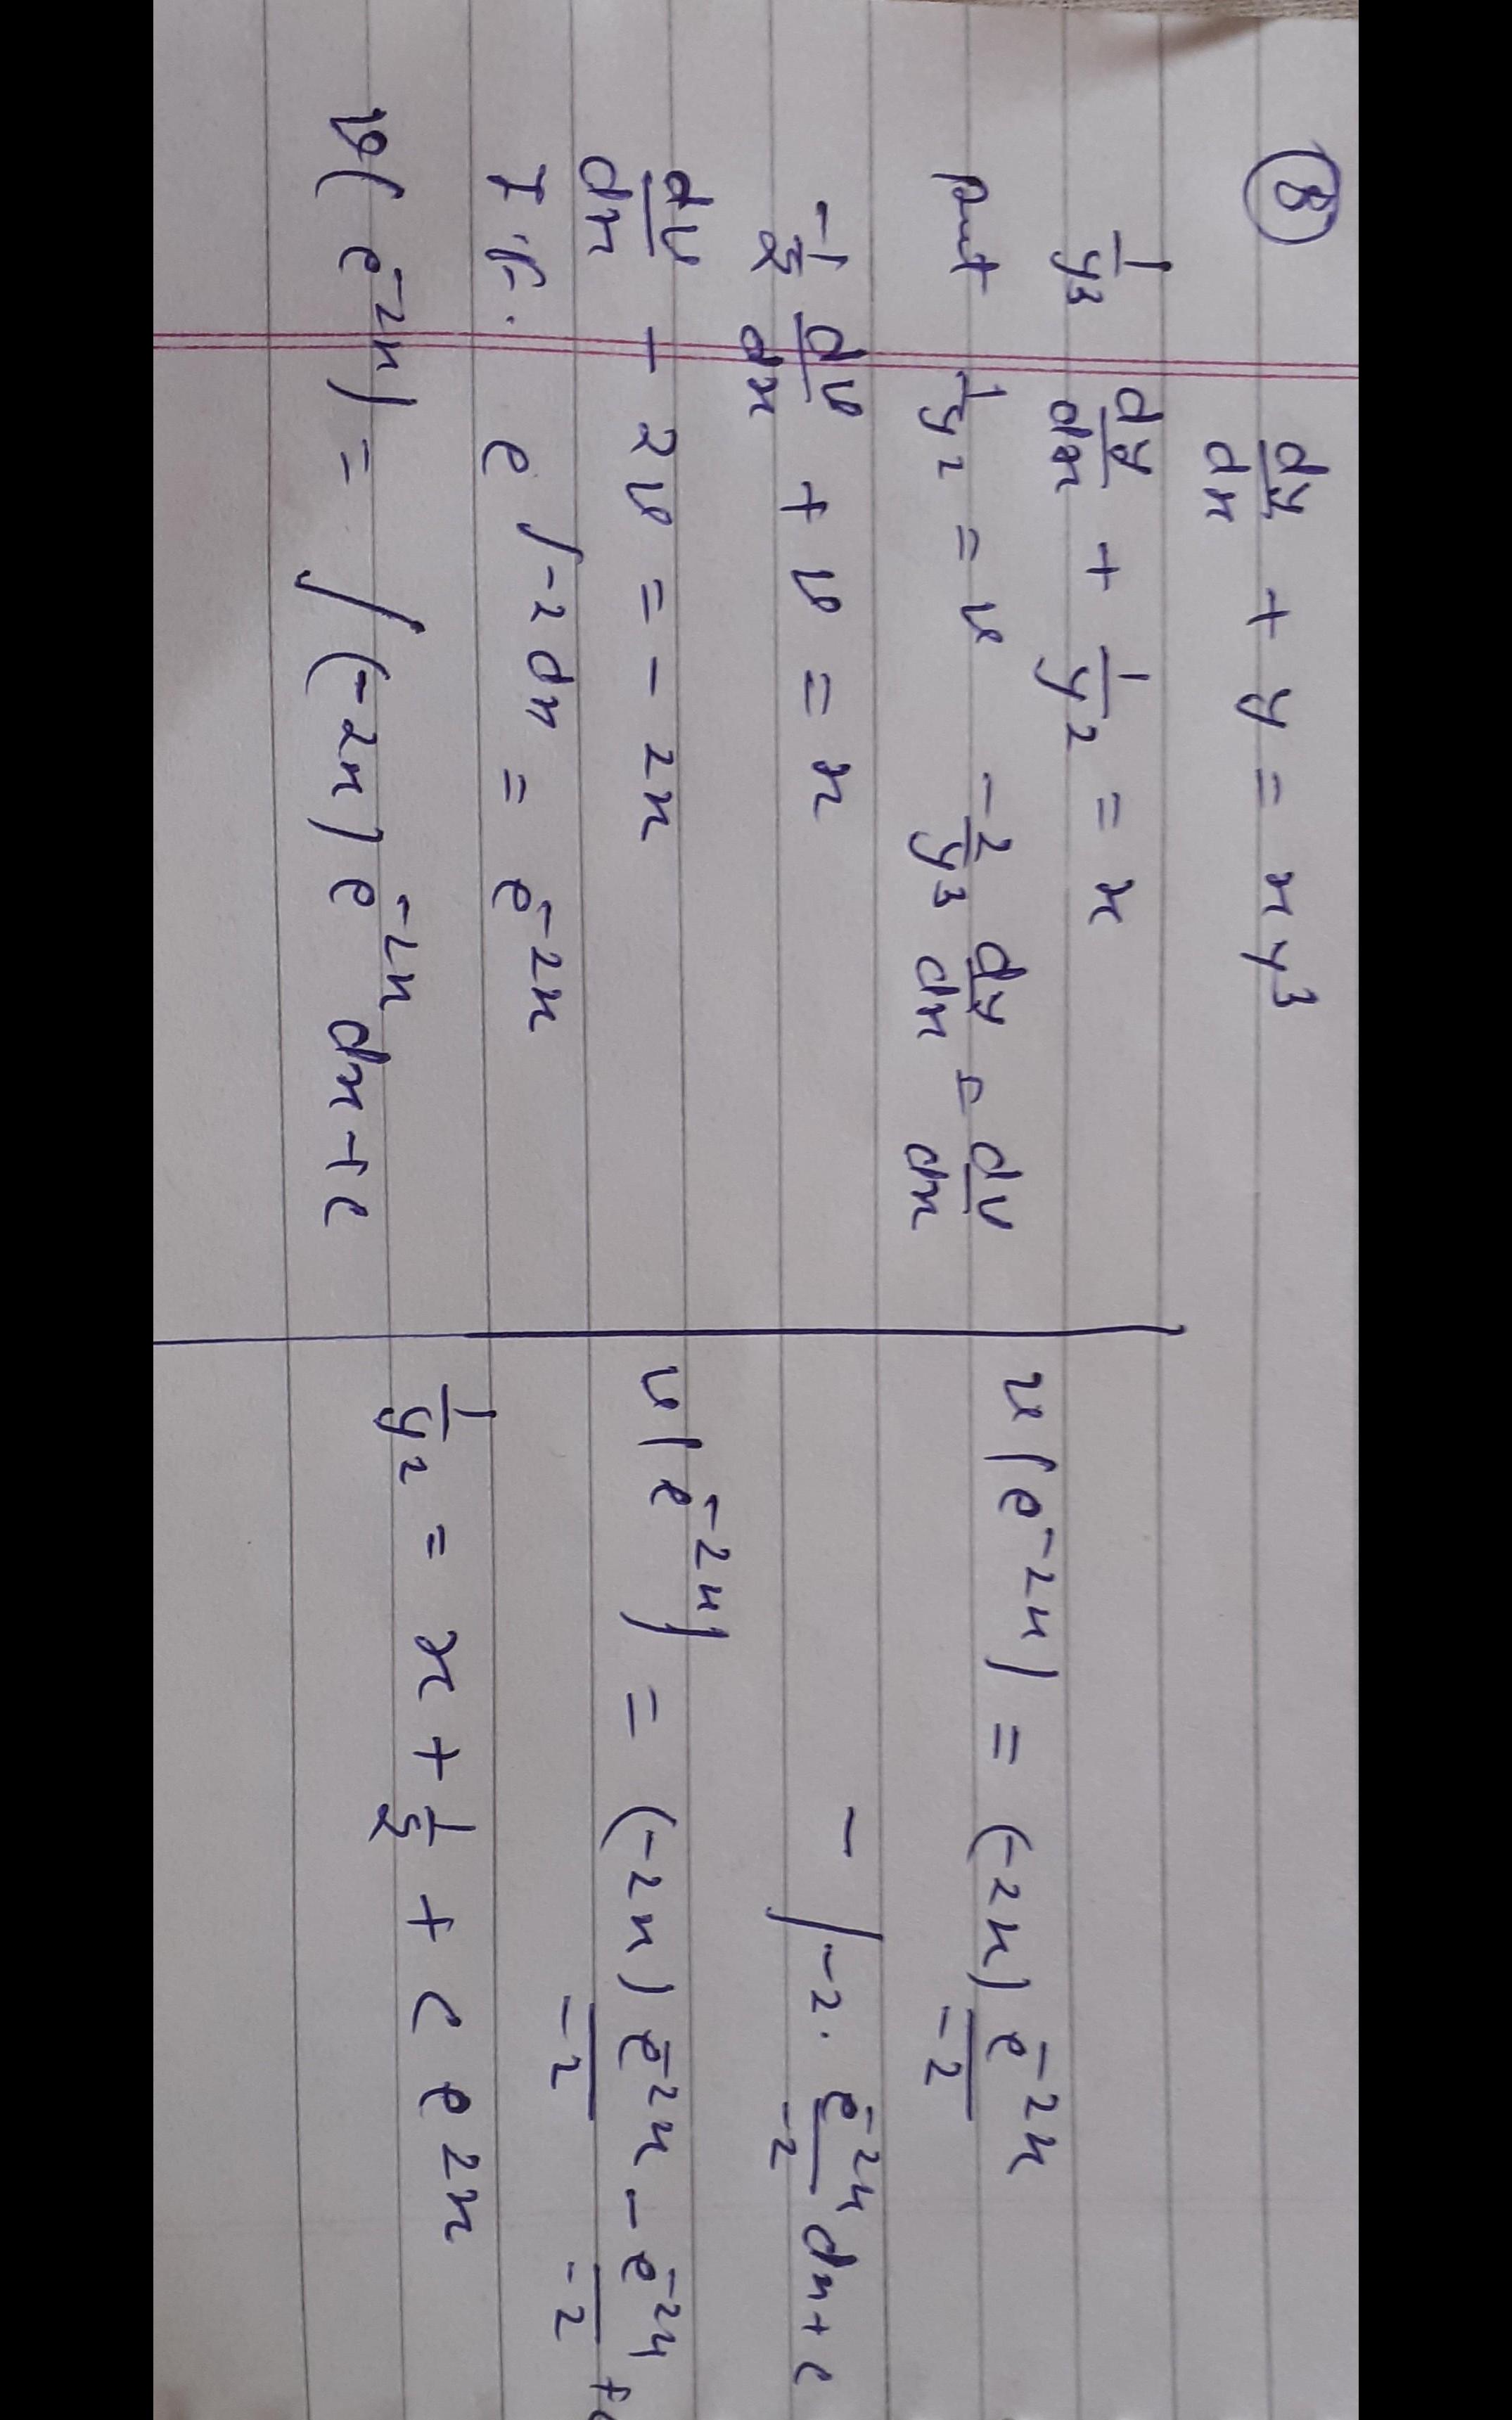 ⑧ dy/dx + y = xy³
1/y³ dy/dx + 1/y² = x
put 1/y² = v -2/y³ dy/dx = dv/dx
-1/2 dv/dx + v = x
dv/dx - 2v = -2x
I.F. e^∫-2dx = e^-2x
v(e^-2x) = ∫(-2x) e^-2x dx + c
v(e^-2x) = (-2x) e^-2x/-2
- ∫-2 · e^-2x/-2 dx + c
v(e^-2x) = (-2x) e^-2x/-2 - e^-2x/-2 + c
1/y² = x + 1/2 + c e^2x